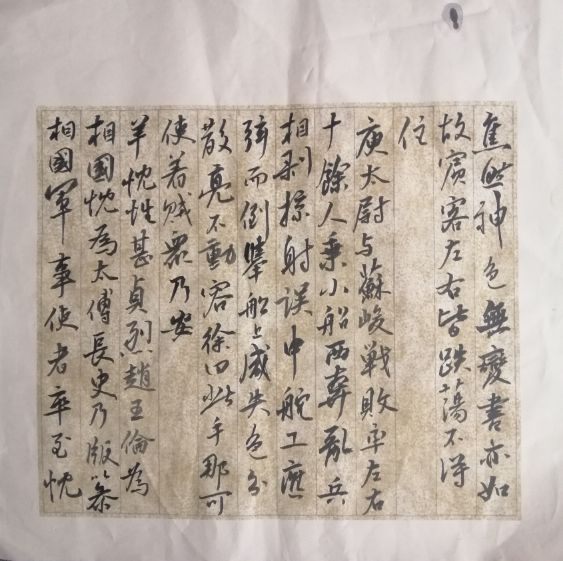 焦然神色無變書亦如
故賓客左右皆跌蕩不得
住
庾太尉与蘇峻戰敗率左右
十餘人乘小船西奔亂兵
相剥掠射誤中舵工應
弦而倒舉船上咸失色分
散亮不動容徐曰此手那可
使着賊衆乃安
羊忱性甚貞烈趙王倫為
相國忱為太傅長史乃版以參
相國軍事使者卒至忱